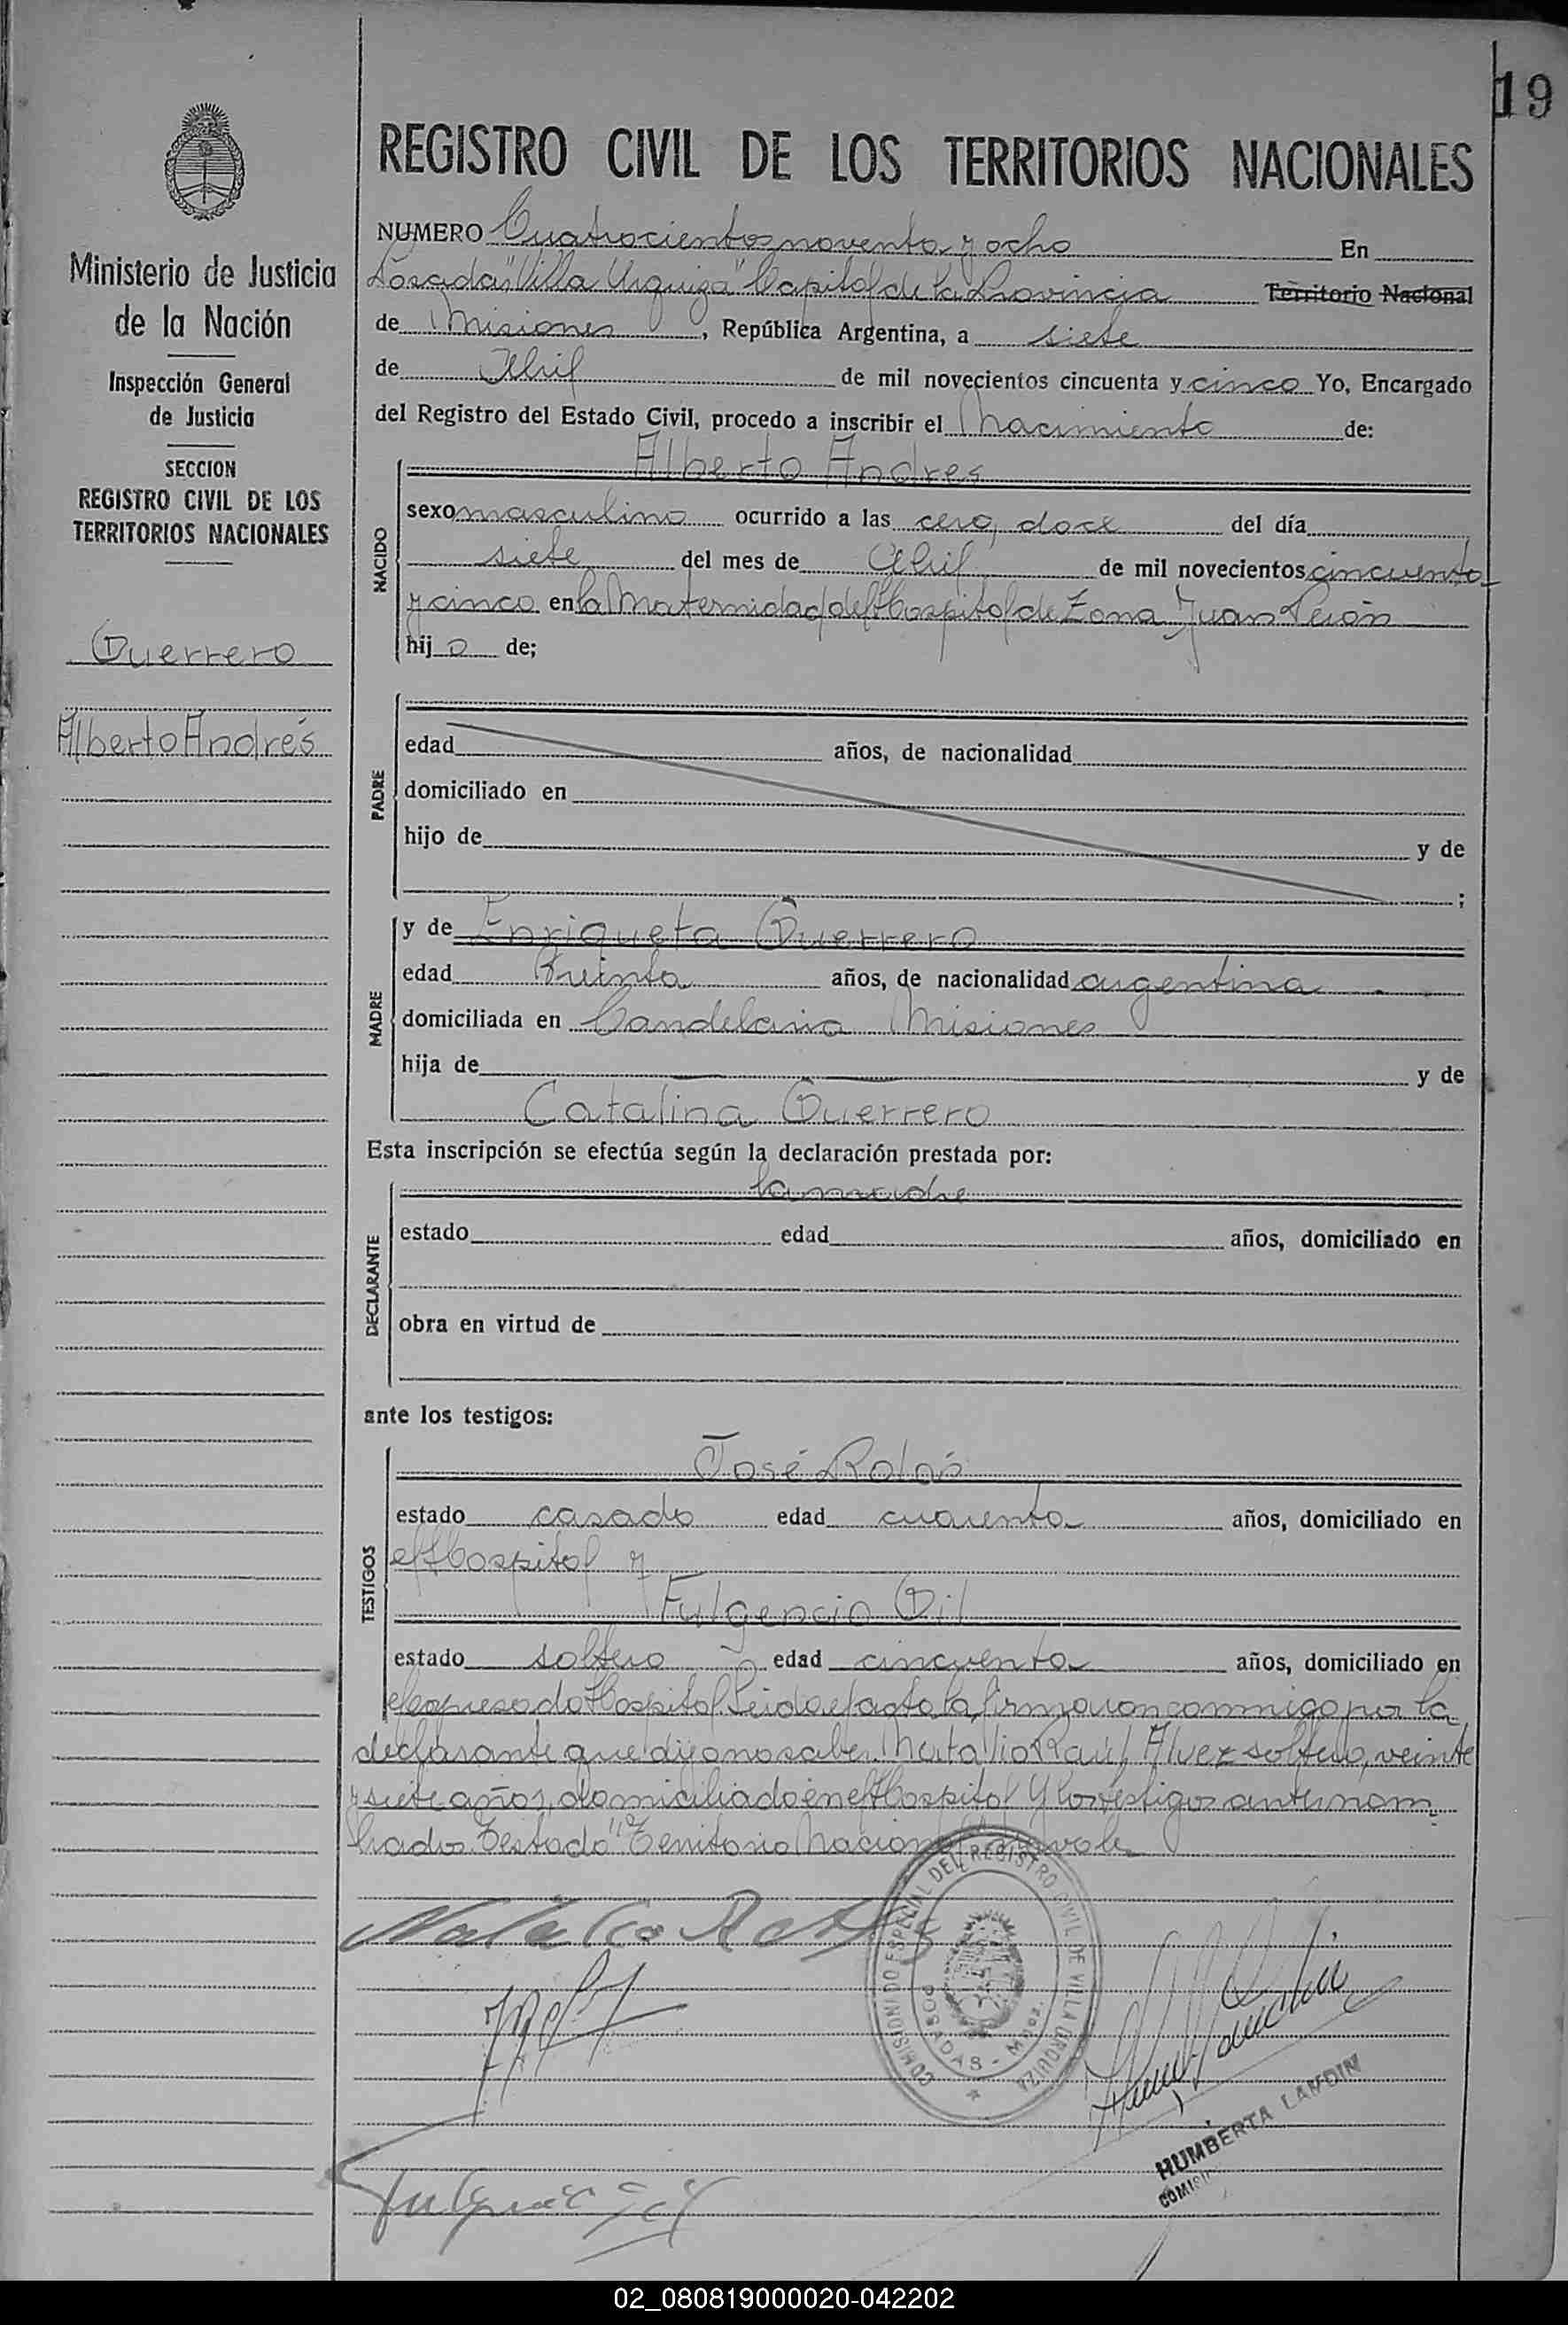 19
REGISTRO CIVIL DE LOS TERRITORIOS NACIONALES
Ministerio de Justicia
de la Nación
Inspección General
de Justicia
SECCION
REGISTRO CIVIL DE LOS
TERRITORIOS NACIONALES
Guerrero
Alberto Andrés
NUMERO Cuatrocientos noventa y ocho En
Posadas "Villa Urquiza" Capital de la Provincia Territorio Nacional
de Misiones, República Argentina, a siete
de Abril de mil novecientos cincuenta y cinco Yo, Encargado
del Registro del Estado Civil, procedo a inscribir el Nacimiento de:
NACIDO
Alberto Andres
sexo masculino ocurrido a las cero, doce del día
siete del mes de Abril de mil novecientos cincuenta
y cinco en la Maternidad del Hospital de Zona Juan Perón
hijo de;
PADRE
edad años, de nacionalidad
domiciliado en
hijo de y de
;
MADRE
y de Enriqueta Guerrero
edad treinta años, de nacionalidad argentina
domiciliada en Candelaria Misiones
hija de y de
Catalina Guerrero
Esta inscripción se efectúa según la declaración prestada por:
DECLARANTE
la madre
estado edad años, domiciliado en
obra en virtud de
ante los testigos:
TESTIGOS
José Rolós
estado casado edad cuarenta años, domiciliado en
el Hospital y
Fulgencio Gil
estado soltero edad cincuenta años, domiciliado en
el expresado Hospital. Leida el acta la firmaron conmigo por la
declarante que dijo no saber. Natalio Raúl Alvez soltero, veinte
y siete años, domiciliado en el Hospital y los testigos antes nom
brados. Testado "Territorio Nacional" no vale
COMISIONADO ESPECIAL DEL REGISTRO CIVIL DE VILLA URQUIZA
POSADAS - Mnes.
HUMBERTA LANDIN
02_080819000020-042202